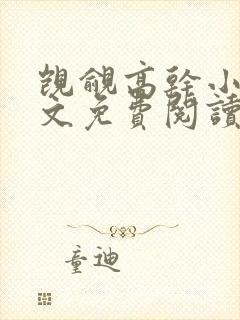 覬覦高幹小
文免費閱讀
童迪